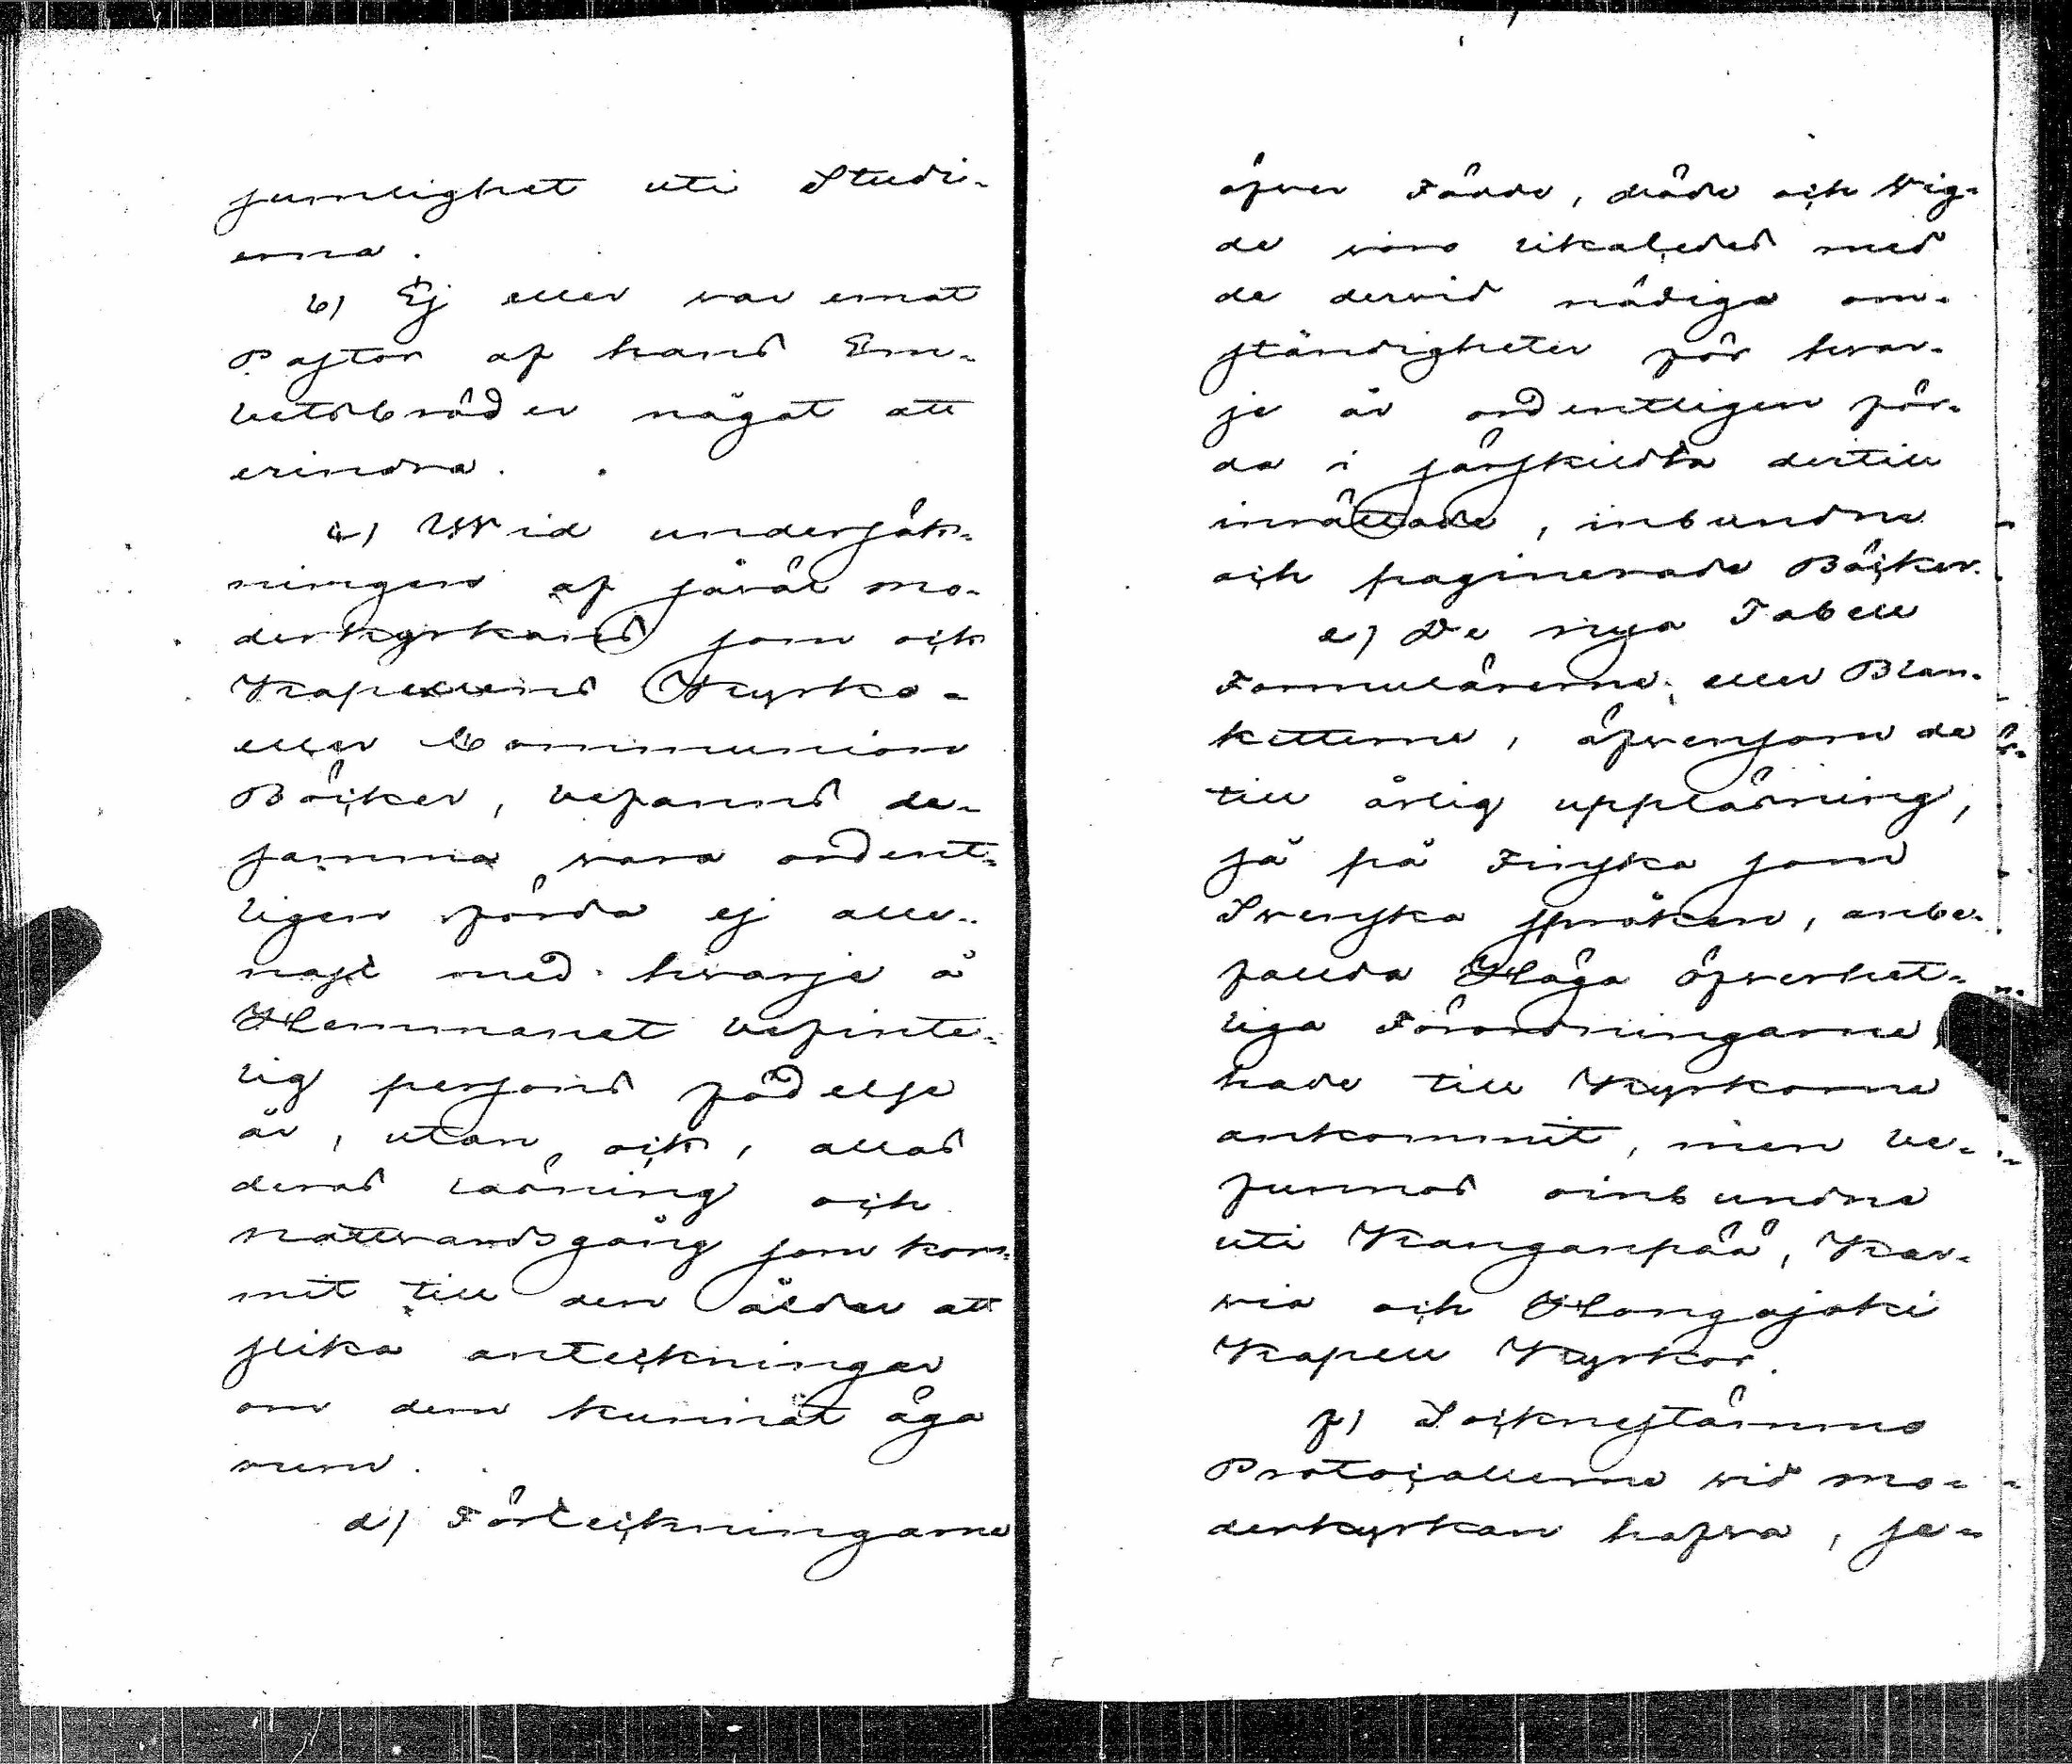 sumlighet uti Studi-
erna.
b) Ej eller var emot
Pastor af hans Em-
betsbröder något att
erindra.
c) Wid undersök-
ningen af såväl mo-
derkyrkans som ock
Kapellens Kyrko-
eller Communion
Böcker, befanns de-
samma vara ordent-
ligen förda ej alle-
nast med hvarje å
Hemmanet befinte-
lig persons födelse
år, utan ock, allas
deras läsning och
nattvardsgång som kom-
mit till den ålder att
slika anteckningar
om dem kunnat äga
rum.
d) Förteckningarne
öfver Födde, döde och Vig-
de voro likaledes med
de dervid nödiga om-
ständigheter för hvar-
je år ordentligen för-
da i särskildta dertill
inrättade, inbundna
och paginerade Böcker.
e) De nya Tabell
Formulärerne, eller Blan-
ketterne, äfvensom de
till årlig uppläsning,
så på Finska som
Svenska språken, anbe-
fallda Höga öfverhet-
liga Förordningarne
hade till Kyrkorne
ankommit, men be-
funnos oinbundna
uti Kanganpää, Kar-
via och Hongojoki
Kapell Kyrkor.
f) Sockenstämmo
Protocollerne vid mo-
derkyrkan hafva, se-